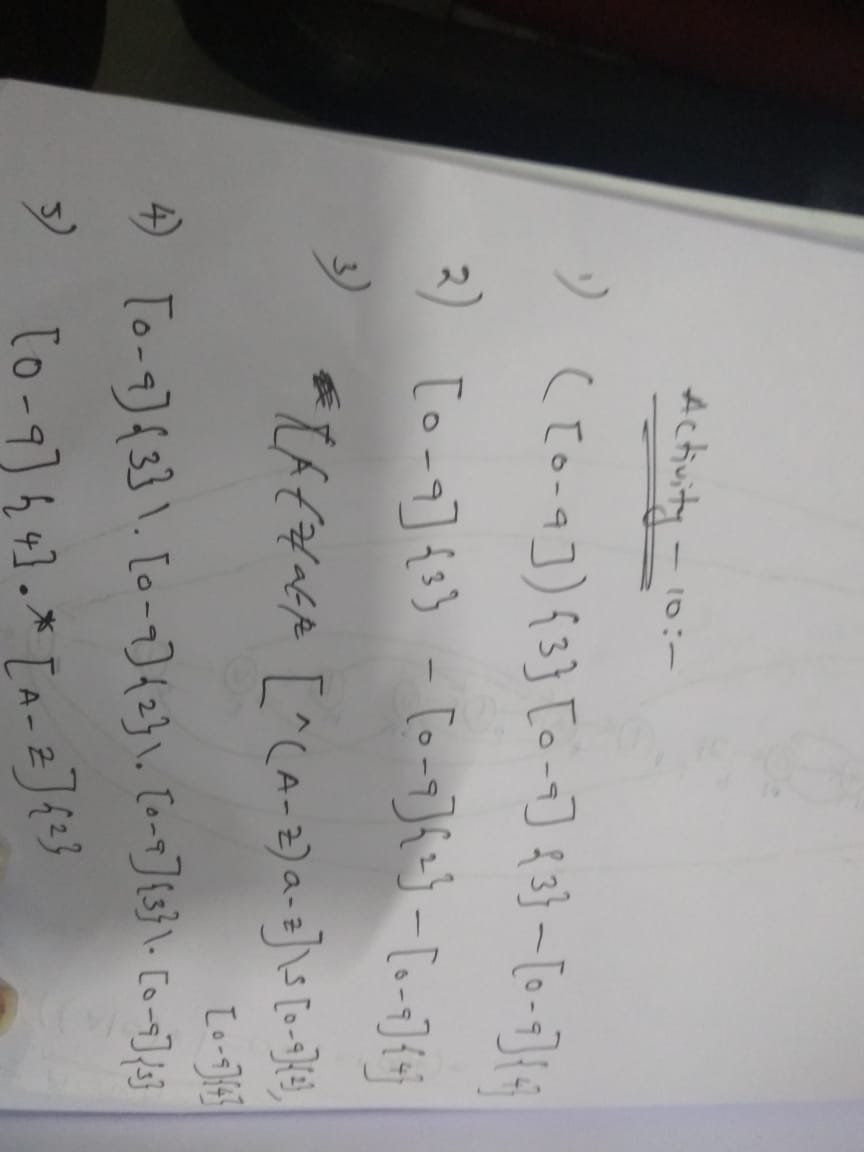 Activity - 10:-
1) ([0-9]){3}[0-9]{3}-[0-9]{4}
2) [0-9]{3} - [0-9]{2}-[0-9]{4}
3) [^(A-Z)a-z]\s[0-9]{2},
[0-9]{4}
4) [0-9]{3}\.[0-9]{2}\.[0-9]{3}\.[0-9]{3}
5) [0-9]{4}.*[A-Z]{2}